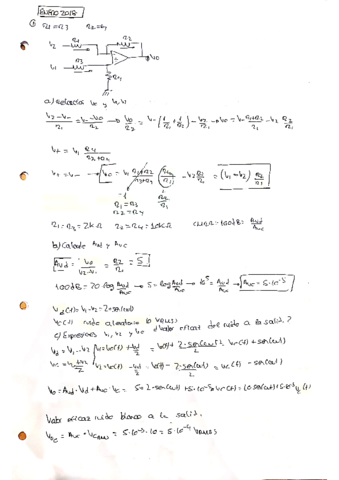 ENERO 2018
① R1=R3 R2=R4
V2 R1 R2
V1 R3 V0
R4
a) Relación V0 y V2, V1
V2-V-/R1 = V--V0/R2 → V0/R2 = V-(1/R1+1/R2) - V2/R1 → V0 = V- R1+R2/R1 - V2 R2/R1
V+ = V1 R4/R3+R4
V+ = V- → V0 = V1 R1+R2/R3+R4 (R4/R1) - V2 R2/R1 = (V1-V2) R2/R1
R1=R3
R2=R4
R1=R3=2kΩ R2=R4=10kΩ CMRR=100dB = Avd/Avc
b) Calcule Avd y Avc
Avd = V0/V2-V1 = R2/R1 = 5
100dB = 20 log Avd/Avc → 5 = log Avd/Avc → 10^5 = Avd/Avc → Avc = 5·10^-5
Vd(t) = V1-V2 = 2·sen(ωt)
Vc(t) ruido aleatorio 10 VRMS
c) Expresiones V1, V2 y V0 d) Valor eficaz del ruido a la salida?
Vd = V1-V2 V1 = Vc(t) + Vd/2 = Vc(t) + 2·sen(ωt)/2 = Vc(t) + sen(ωt)
Vc = V1+V2/2 V2 = Vc(t) - Vd/2 = Vc(t) - 2·sen(ωt)/2 = Vc(t) - sen(ωt)
V0 = Avd·Vd + Avc·Vc = 5·2·sen(ωt) + 5·10^-5·Vc(t) = 10 sen(ωt) + 5·10^-5 Vc(t)
Valor eficaz ruido blanco a la salida.
= Avc · = 5·10^-5·10 = 5·10^-4 VRMS